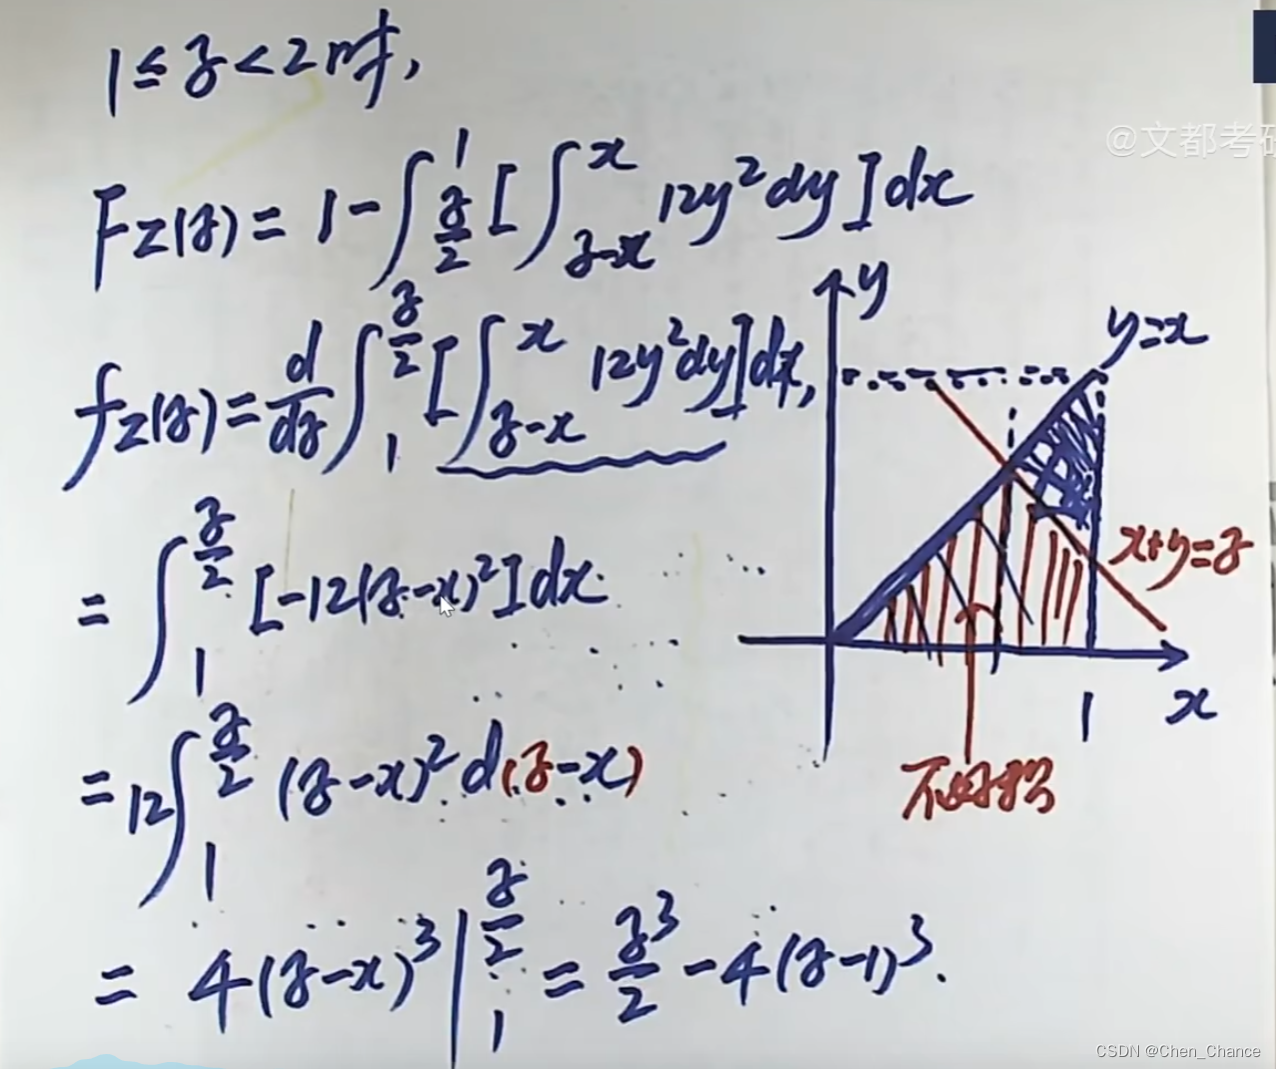 1≤z<2时,
F_Z(z)=1-∫_{z/2}^{1}[∫_{z-x}^{x}12y²dy]dx
f_Z(z)=d/dz∫_{1}^{z/2}[∫_{z-x}^{x}12y²dy]dx,
=∫_{1}^{z/2}[-12(z-x)²]dx
=12∫_{1}^{z/2}(z-x)²d(z-x)
=4(z-x)³|_{1}^{z/2}=z³/2-4(z-1)³.
@文都考研
y
y=x
x+y=z
1
x
不好积
CSDN @Chen_Chance